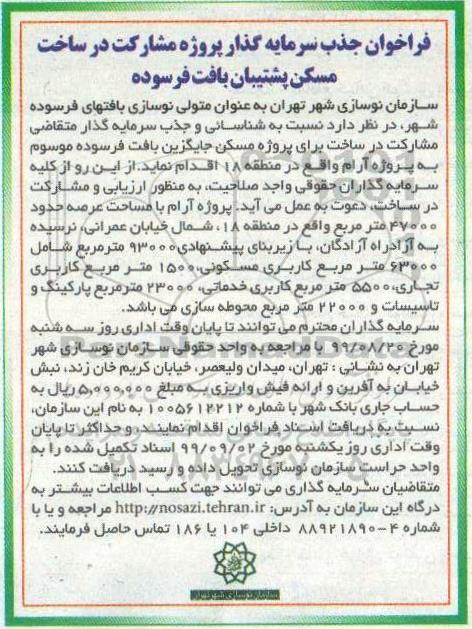 فراخوان جذب سرمایه گذار پروژه مشارکت در ساخت
مسکن پشتیبان بافت فرسوده
سازمان نوسازی شهر تهران به عنوان متولی نوسازی بافتهای فرسوده
شهر، در نظر دارد نسبت به شناسائی و جذب سرمایه گذار متقاضی
مشارکت در ساخت برای پروژه مسکن جایگزین بافت فرسوده موسوم
به پروژه آرام واقع در منطقه ۱۸ اقدام نماید. از این رو از کلیه
سرمایه گذاران حقوقی واجد صلاحیت، به منظور ارزیابی و مشارکت
در ساخت، دعوت به عمل می آید. پروژه آرام با مساحت عرصه حدود
۴۷۰۰۰ متر مربع واقع در منطقه ۱۸، شمال خیابان عمرانی، نرسیده
به آزادراه آزادگان، با زیربنای پیشنهادی ۹۳۰۰۰ مترمربع شامل
۶۳۰۰۰ متر مربع کاربری مسکونی، ۱۵۰۰ متر مربع کاربری
تجاری، ۵۵۰۰ متر مربع کاربری خدماتی، ۲۳۰۰۰ مترمربع پارکینگ و
تاسیسات و ۲۲۰۰۰ متر مربع محوطه سازی می باشد.
سرمایه گذاران محترم می توانند تا پایان وقت اداری روز سه شنبه
مورخ ۹۹/۰۸/۲۰ با مراجعه به واحد حقوقی سازمان نوسازی شهر
تهران به نشانی : تهران، میدان ولیعصر، خیابان کریم خان زند، نبش
خیابان به آفرین و ارائه فیش واریزی به مبلغ ۵,۰۰۰,۰۰۰ ریال به
حساب جاری بانک شهر با شماره ۱۰۰۵۶۱۲۲۱۲ به نام این سازمان،
نسبت به دریافت اسناد فراخوان اقدام نمایند. و حداکثر تا پایان
وقت اداری روز یکشنبه مورخ ۹۹/۰۹/۰۲ اسناد تکمیل شده را به
واحد حراست سازمان نوسازی تحویل داده و رسید دریافت کنند.
متقاضیان سرمایه گذاری می توانند جهت کسب اطلاعات بیشتر به
درگاه این سازمان به آدرس: http://nosazi.tehran.ir مراجعه و یا با
شماره ۴-۸۸۹۲۱۸۹۰ داخلی ۱۰۴ یا ۱۸۶ تماس حاصل فرمایند.
سازمان نوسازی شهر تهران